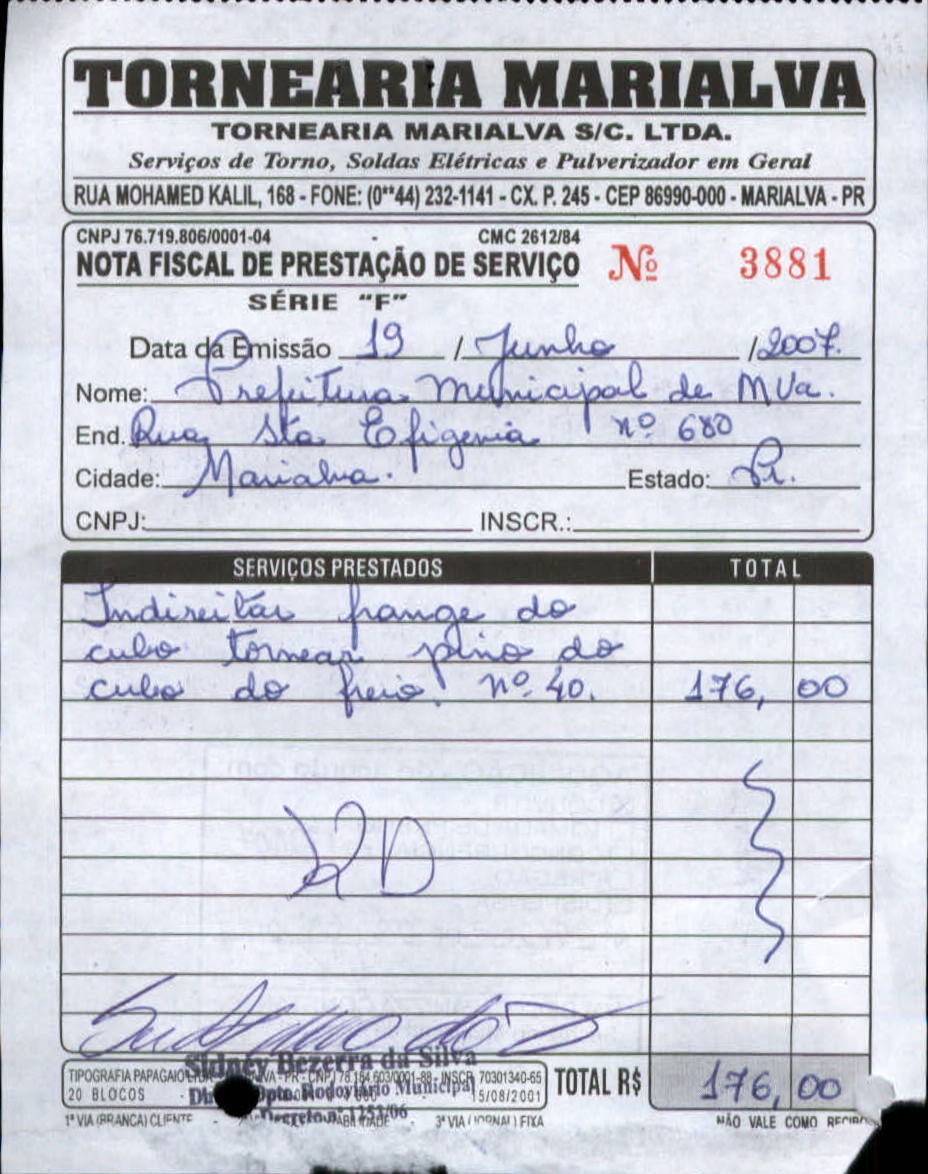 TORNEARIA MARIALVA
TORNEARIA MARIALVA S/C. LTDA.
Serviços de Torno, Soldas Elétricas e Pulverizador em Geral
RUA MOHAMED KALIL, 168 - FONE: (0**44) 232-1141 - CX. P. 245 - CEP 86990-000 - MARIALVA - PR
CNPJ 76.719.806/0001-04 CMC 2612/84
NOTA FISCAL DE PRESTAÇÃO DE SERVIÇO Nº 3881
SÉRIE "F"
Data da Emissão 19 / Junho /2007.
Nome: Prefeitura Municipal de MVa.
End. Rua Sta Efigenia nº 680
Cidade: Marialva. Estado: Pr.
CNPJ: INSCR.:
SERVIÇOS PRESTADOS TOTAL
Indireitar frange do
cubo tornear pino do
cubo do freio. nº. 40. 176,00
Sidney Bezerra da Silva
TIPOGRAFIA PAPAGAIO - PR - CNPJ 76.164.603/0001-88 - INSCR. 70301340-65
Dpto. Rodoviário Municipal
20 BLOCOS 15/08/2001
TOTAL R$ 176,00
Decreto nº 1253/06
1ª VIA (BRANCA) CLIENTE 3ª VIA (JORNAL) FIXA NÃO VALE COMO